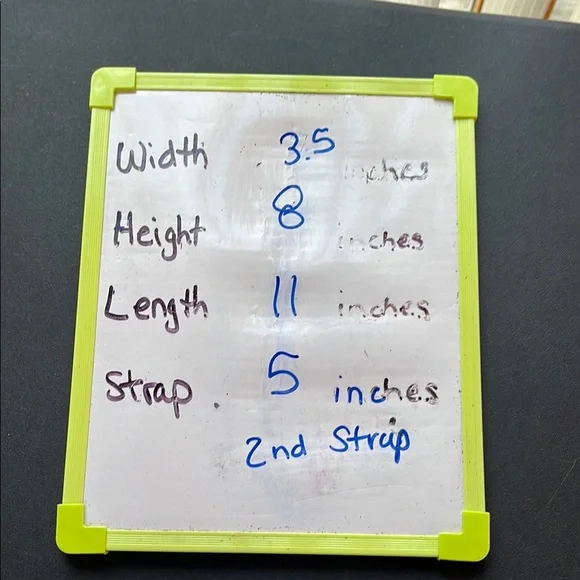 Width 3.5 inches
Height 8 inches
Length 11 inches
Strap. 5 inches
2nd Strap